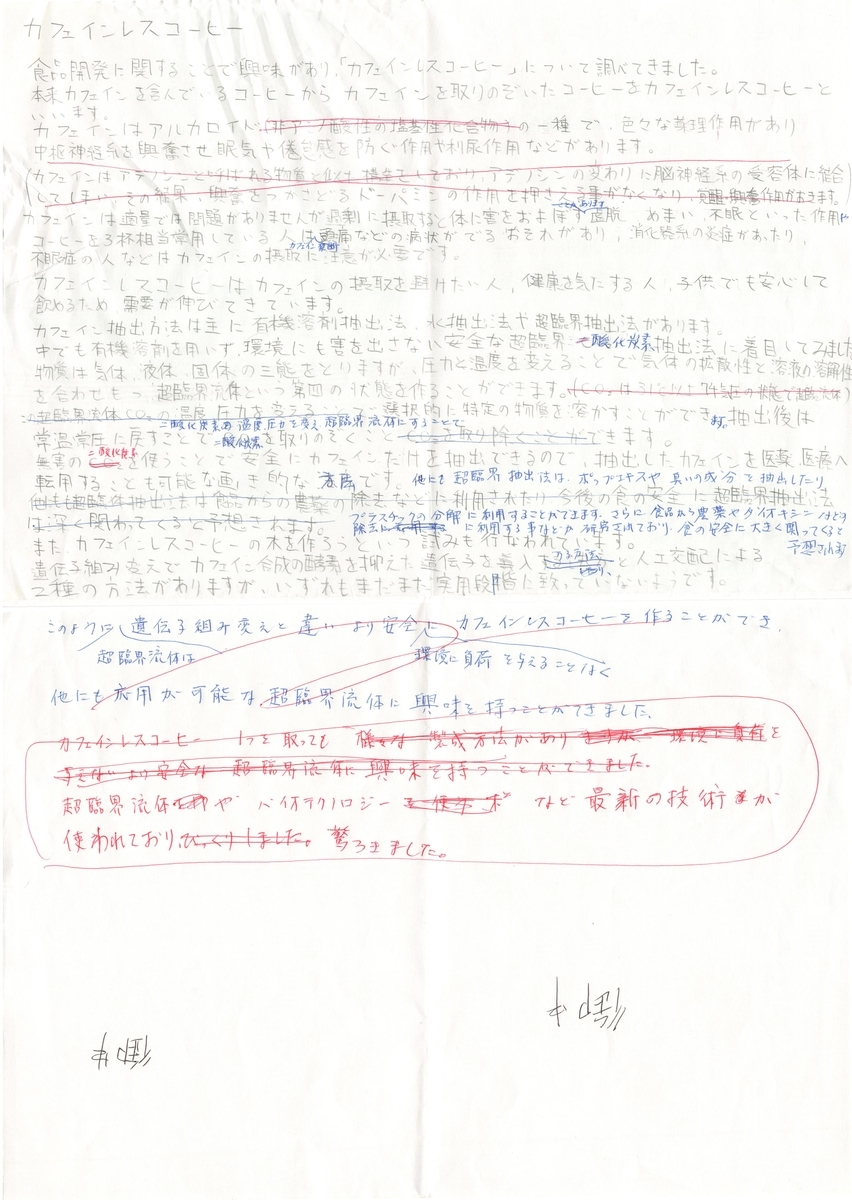 カフェインレスコーヒー
食品開発に関することで興味があり、「カフェインレスコーヒー」について調べてきました。
本来カフェインを含んでいるコーヒーからカフェインを取りのぞいたコーヒーをカフェインレスコーヒーと
いいます。
カフェインはアルカロイド(非アミノ酸性の塩基性化合物)の一種で、色々な薬理作用があり
中枢神経系を興奮させ眠気や倦怠感を防ぐ作用や利尿作用などがあります。
(カフェインはアデノシンとよばれる物質と似た構造をしており、アデノシンの変わりに脳神経系の受容体に結合
してしまい、その結果、興奮をつかさどるドーパミンの作用を押さえる事がなくなり、覚醒・興奮作用がおきます。
カフェインは適量では問題がありませんが過剰に摂取すると体に害をおよぼす めまい、不眠といった作用が
コーヒーを3杯相当常用している人は頭痛などの病状がでるおそれがあり、消化器系の炎症があったり、
カフェイン
不眠症の人などはカフェインの摂取に注意が必要です。
カフェインレスコーヒーはカフェインの摂取を避けたい人、健康を気にする人、子供でも安心して
飲めるため、需要が伸びてきています。
カフェイン抽出方法は主に有機溶剤抽出法、水抽出法や超臨界抽出法があります。
中でも有機溶剤を用いず、環境にも害を出さない安全な超臨界二酸化炭素抽出法に着目してみました
物質は気体、液体、固体の三態をとりますが、圧力と温度を変えることで気体の拡散性と溶液の溶解性
を合わせもつ超臨界流体という第四の状態を作ることができます。(CO₂は31℃以上74気圧の状態で超臨界流体)
超臨界流体CO₂の温度、圧力を変える 選択的に特定の物質を溶かすことができます。抽出後は
二酸化炭素の温度圧力を変え超臨界流体にすることで
常温常圧に戻すことで二酸化炭素を取りのぞくことができます。
二酸化炭素
無害の を使うことで安全にカフェインだけを抽出できるので、抽出したカフェインを医薬、医療へ
転用することも可能な画き的な方法です。他にも超臨界抽出法は、ホップエキスや臭いの成分を抽出したり、
他にも超臨界抽出法は食品からの農薬の除去などに利用されたり今後の食の安全に超臨界抽出法
は深く関わってくると予想されます。
プラスチックの分解に利用することができます。さらに食品から農薬やダイオキシンなどの
除去に 利用する事などが研究されており、食の安全に大きく関ってくると
予想されます
またカフェインレスコーヒーの木を作ろうと 試みも行なわれています。
遺伝子組み変えでカフェイン合成の酵素を抑えた遺伝子を導入 と人工交配による
二種の方法がありますが、いずれもまだまだ実用段階に致っていないようです。
このように、遺伝子組み変えと違いより安全に カフェインレスコーヒーを作ることができ、
超臨界流体は 環境に負荷を与えることなく
他にも応用が可能な超臨界流体に興味を持つことができました。
カフェインレスコーヒー1つを取っても 様々な製成方法があり ますが、環境に負荷を
与えないより安全な超臨界流体に興味を持つことができました。
超臨界流体やバイオテクノロジー など最新の技術が
使われており、びっくりしました。驚ろきました。